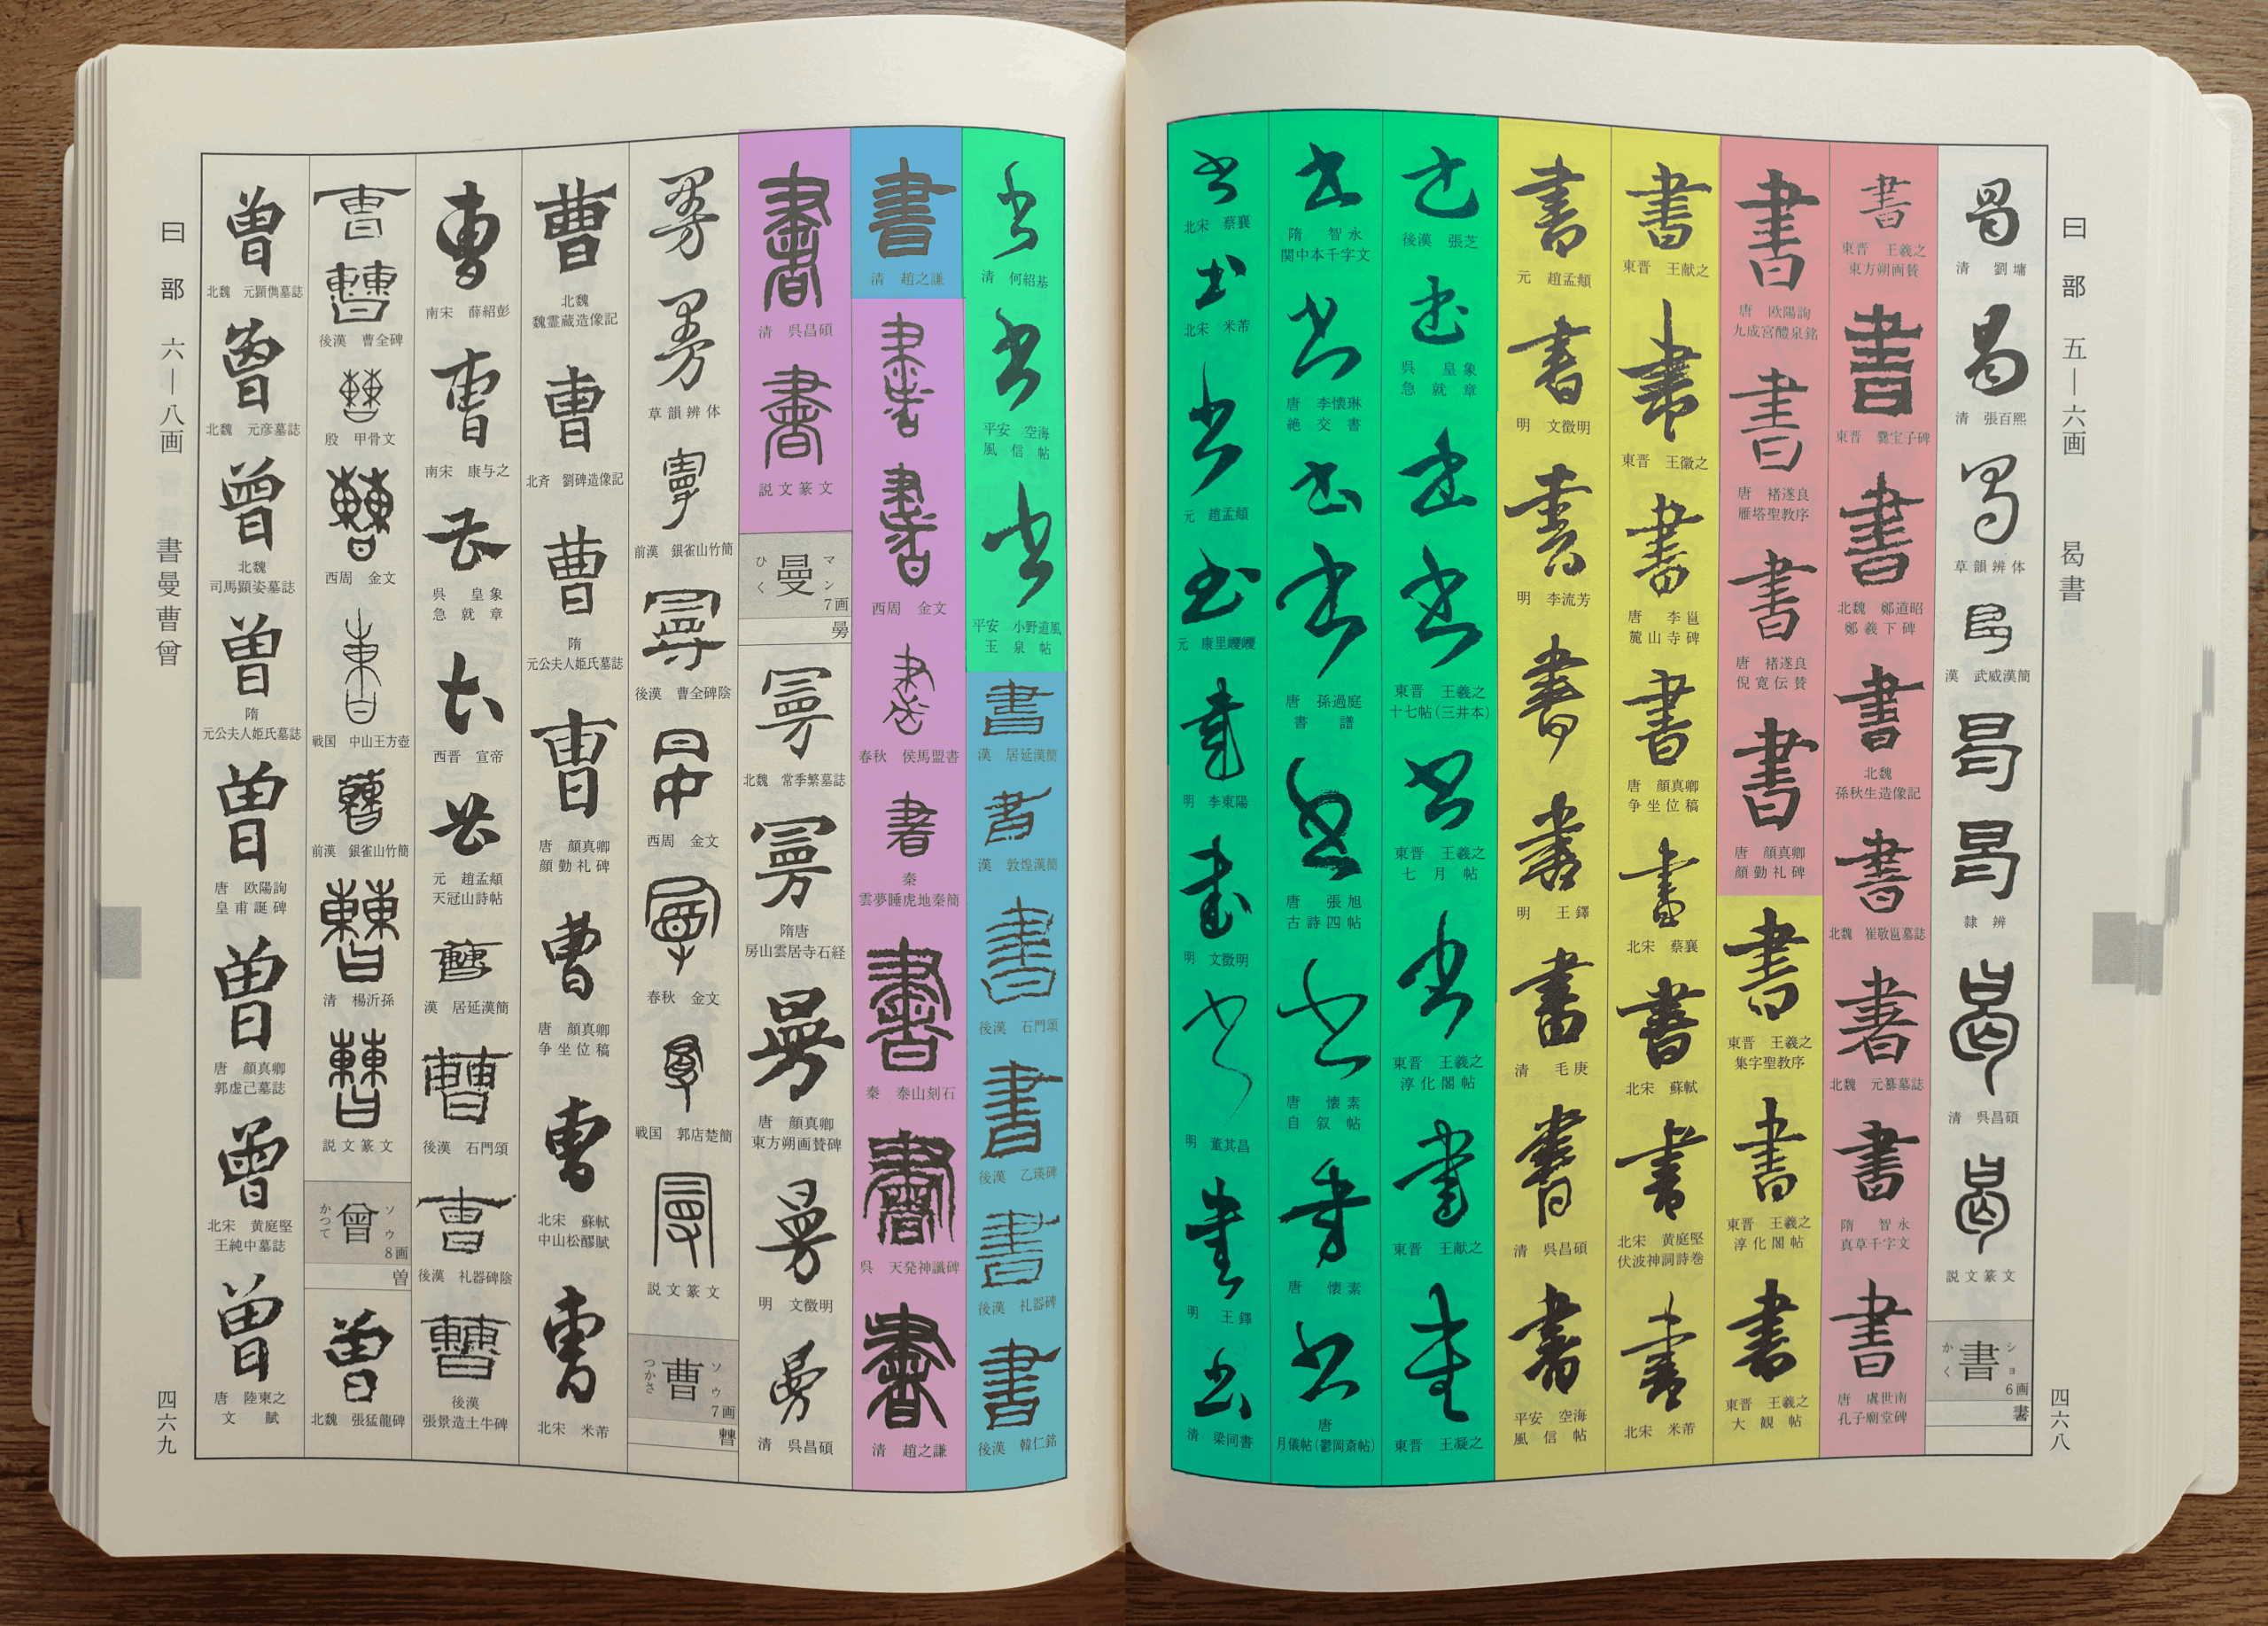 曰部 五―六画 曷書
曷
清 劉墉
曷
清 張百熙
曷
草韻辨体
曷
漢 武威漢簡
曷
曷
隷辨
曷
清 呉昌碩
曷
説文篆文
書
ショ
かく
6画
書
東晋 王羲之
東方朔画賛
書
東晋 爨宝子碑
書
北魏 鄭道昭
鄭羲下碑
書
北魏
孫秋生造像記
書
北魏 崔敬邕墓誌
書
北魏 元纂墓誌
書
隋 智永
真草千字文
書
唐 虞世南
孔子廟堂碑
書
唐 欧陽詢
九成宮醴泉銘
書
唐 褚遂良
雁塔聖教序
書
唐 褚遂良
倪寛伝賛
書
唐 顔真卿
顔勤礼碑
書
東晋 王羲之
集字聖教序
書
東晋 王羲之
淳化閣帖
書
東晋 王羲之
大観帖
書
東晋 王献之
書
東晋 王徽之
書
唐 李邕
麓山寺碑
書
唐 顔真卿
争坐位稿
書
北宋 蔡襄
書
北宋 蘇軾
書
北宋 黄庭堅
伏波神祠詩巻
書
北宋 米芾
書
元 趙孟頫
書
明 文徴明
書
明 李流芳
書
書
明 王鐸
書
清 毛庚
書
清 呉昌碩
書
平安 空海
風信帖
書
後漢 張芝
書
呉 皇象
急就章
書
書
東晋 王羲之
十七帖(三井本)
書
東晋 王羲之
七月帖
書
東晋 王羲之
淳化閣帖
書
東晋 王献之
書
東晋 王凝之
書
隋 智永
関中本千字文
書
唐 李懐琳
絶交書
書
書
唐 孫過庭
書譜
書
唐 張旭
古詩四帖
書
唐 懐素
自叙帖
書
唐 懐素
書
唐
月儀帖(鬱岡斎帖)
書
北宋 蔡襄
書
北宋 米芾
書
元 趙孟頫
書
元 康里巎巎
書
明 李東陽
書
明 文徴明
書
明 董其昌
書
明 王鐸
書
清 梁同書
四六八
曰部 六―八画 書曼曹曾
書
清 何紹基
書
平安 空海
風信帖
書
平安 小野道風
玉泉帖
書
漢 居延漢簡
書
漢 敦煌漢簡
書
後漢 石門頌
書
後漢 乙瑛碑
書
後漢 礼器碑
書
後漢 韓仁銘
書
清 趙之謙
書
書
西周 金文
書
春秋 侯馬盟書
書
秦
雲夢睡虎地秦簡
書
秦 泰山刻石
書
呉 天発神讖碑
書
清 趙之謙
書
清 呉昌碩
書
説文篆文
曼
マン
ひく
7画
曼
北魏 常季繁墓誌
曼
隋唐
房山雲居寺石経
曼
唐 顔真卿
東方朔画賛碑
曼
明 文徴明
曼
清 呉昌碩
曼
曼
草韻辨体
曼
前漢 銀雀山竹簡
曼
後漢 曹全碑陰
曼
西周 金文
曼
春秋 金文
曼
戦国 郭店楚簡
曼
説文篆文
曹
ソウ
つかさ
7画
曹
北魏
魏霊蔵造像記
曹
北斉 劉碑造像記
曹
隋
元公夫人姫氏墓誌
曹
唐 顔真卿
顔勤礼碑
曹
唐 顔真卿
争坐位稿
曹
北宋 蘇軾
中山松醪賦
曹
北宋 米芾
曹
南宋 薛紹彭
曹
南宋 康与之
曹
呉 皇象
急就章
曹
西晋 宣帝
曹
元 趙孟頫
天冠山詩帖
曹
漢 居延漢簡
曹
後漢 石門頌
曹
後漢 礼器碑陰
曹
後漢
張景造土牛碑
曹
曹
後漢 曹全碑
曹
殷 甲骨文
曹
西周 金文
曹
戦国 中山王方壺
曹
前漢 銀雀山竹簡
曹
清 楊沂孫
曹
説文篆文
曾
ソウ
かつて
8画
曽
曾
北魏 張猛龍碑
曾
北魏 元顕儁墓誌
曾
北魏 元彦墓誌
曾
北魏
司馬顕姿墓誌
曾
隋
元公夫人姫氏墓誌
曾
唐 欧陽詢
皇甫誕碑
曾
唐 顔真卿
郭虚己墓誌
曾
北宋 黄庭堅
王純中墓誌
曾
唐 陸柬之
文賦
四六九